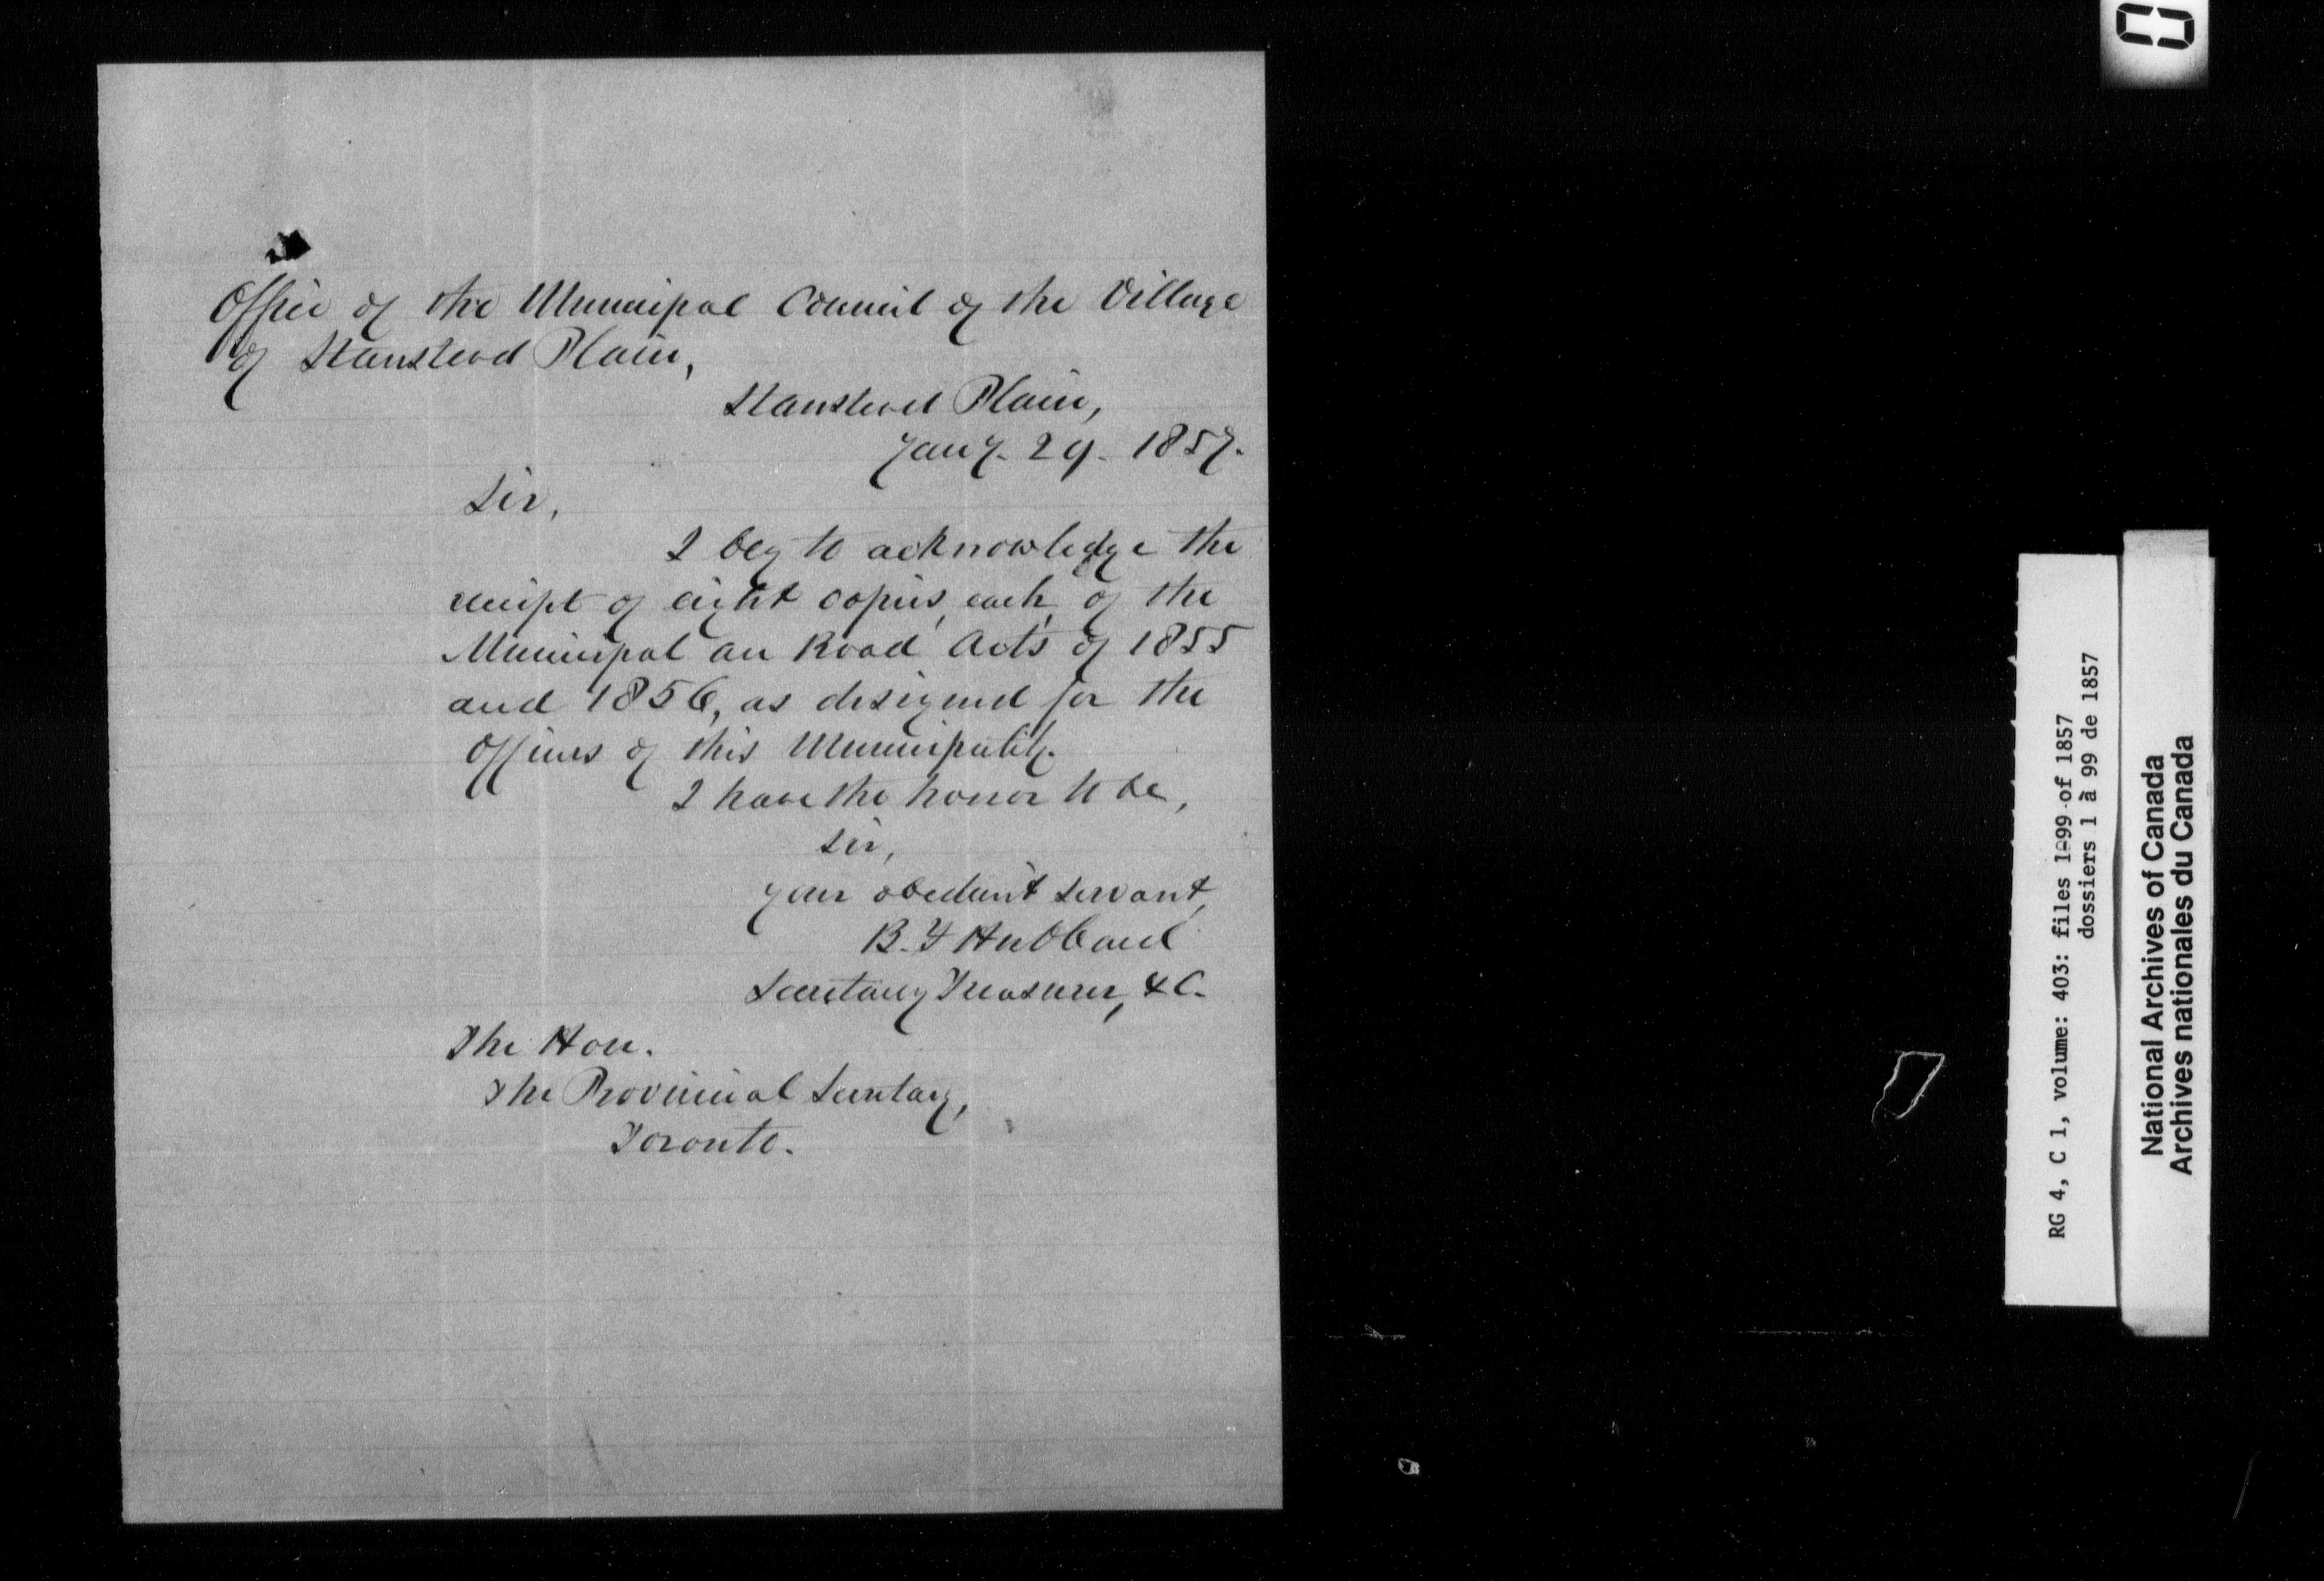 Office of the Municipal Council of the Village
of Stanstead Plain,
Stanstead Plain,
Jany. 29. 1857.
Sir,
I beg to acknowledge the
receipt of eight copies, each, of the
Municipal an Road Acts of 1855
and 1856, as designed for the
Officers of this Municipality.
I have the honor to be,
Sir,
your obedient servant,
B. F Hubbard
Secretary Treasurer, &C.
The Hon.
The Provincial Secretary,
Toronto.
RG 4, C 1, volume: 403: files 1-99 of 1857
dossiers 1 à 99 de 1857
National Archives of Canada
Archives nationales du Canada